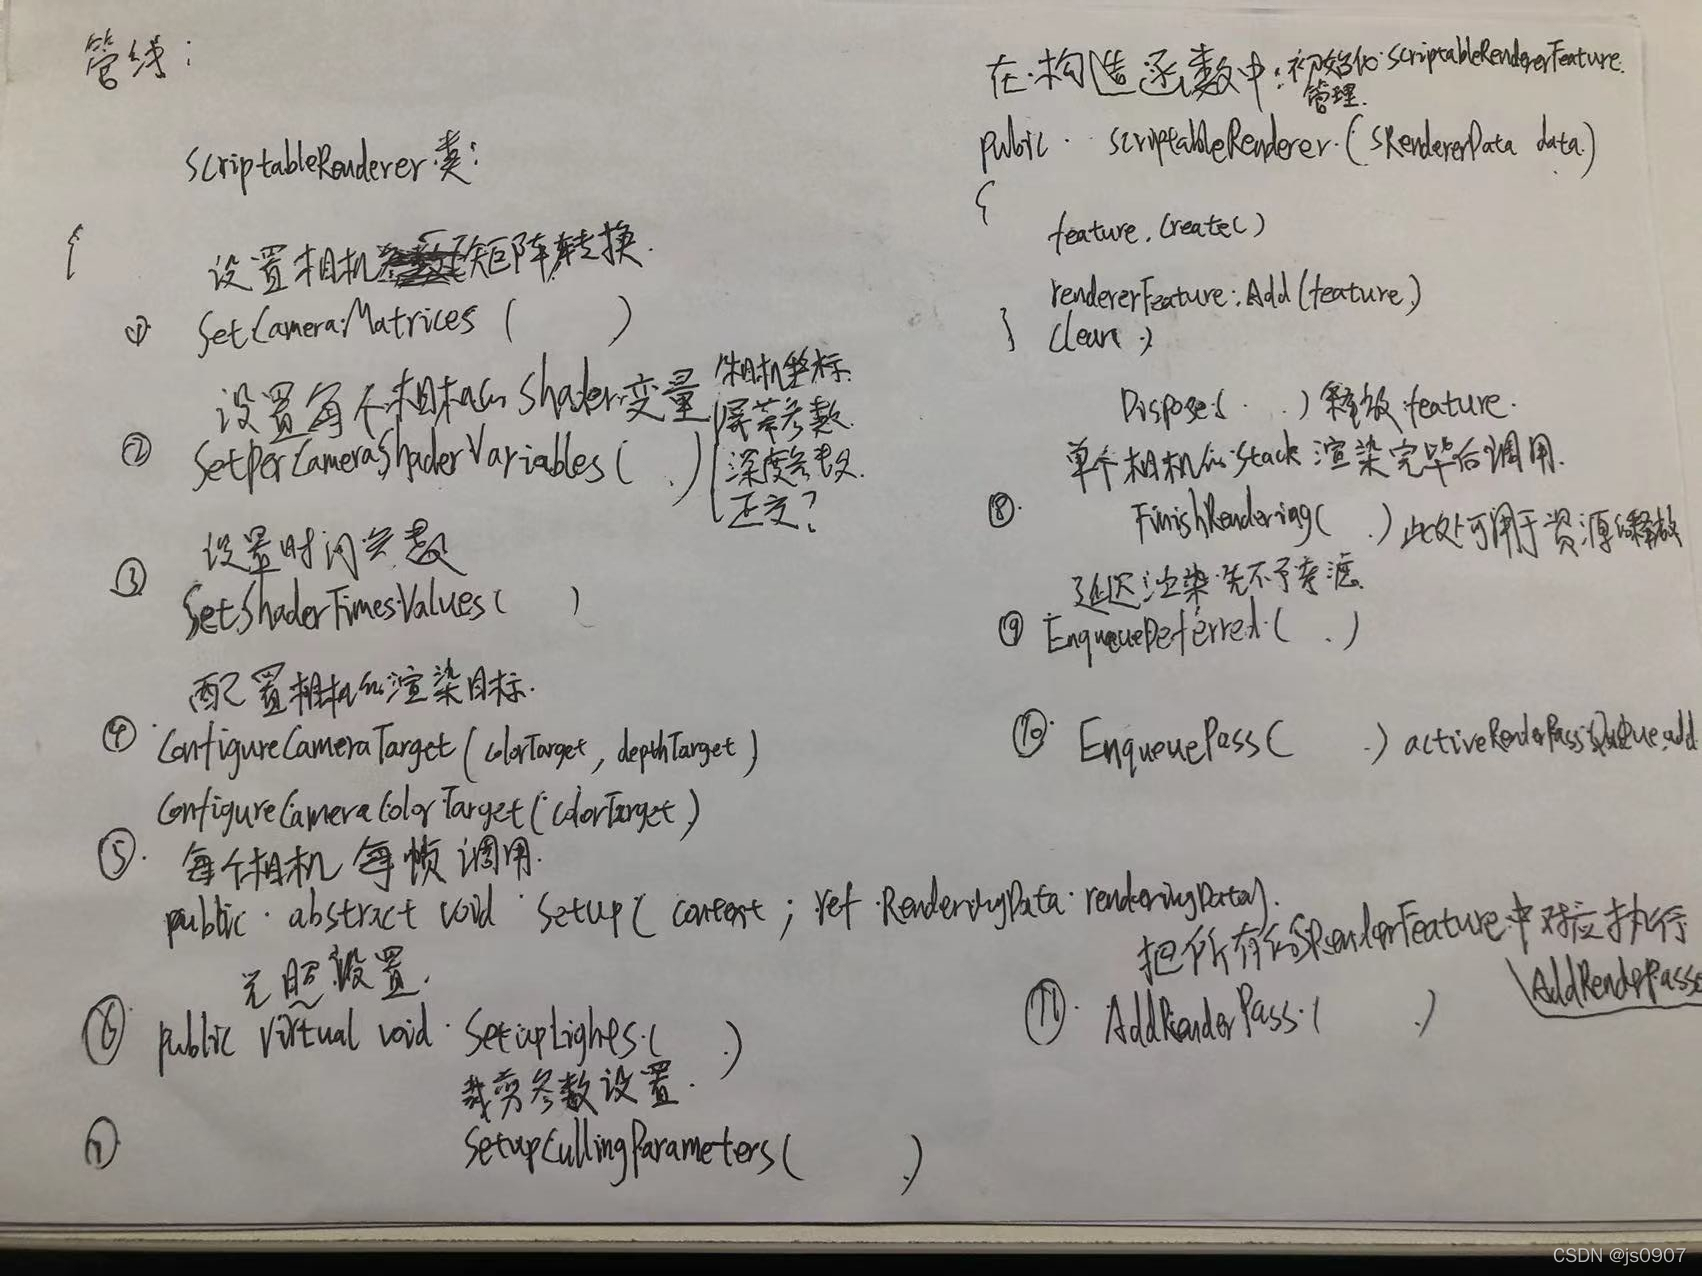 管线:
ScriptableRenderer类:
{
设置相机矩阵转换.
① SetCameraMatrices ( )
设置每个相机的Shader变量
② SetPerCameraShaderVariables( )
相机坐标
屏幕参数
深度参数
正交?
设置时间参数
③ SetShaderTimesValues( )
配置相机的渲染目标.
④ ConfigureCameraTarget(colorTarget, depthTarget)
ConfigureCameraColorTarget(colorTarget)
⑤ 每个相机每帧调用.
public abstract void Setup( context ; ref RenderingData renderingData).
光照设置.
⑥ public virtual void SetupLights( )
裁剪参数设置.
⑦ SetupCullingParameters( )
在构造函数中:初始化ScriptableRendererFeature.
管理.
public ScriptableRenderer(SRendererData data)
{
feature.Create()
rendererFeature.Add(feature)
} Clear )
Dispose( ) 释放feature.
单个相机的Stack渲染完毕后调用.
⑧ FinishRendering( ) 此处可用于资源的释放
延迟渲染先不予考虑.
⑨ EnqueueDeferred( )
⑩ EnqueuePass( ) activeRenderPassQueue.add
把所有的SRenderFeature中对应执行
AddRenderPasses
⑪ AddRenderPass( )
CSDN @js0907